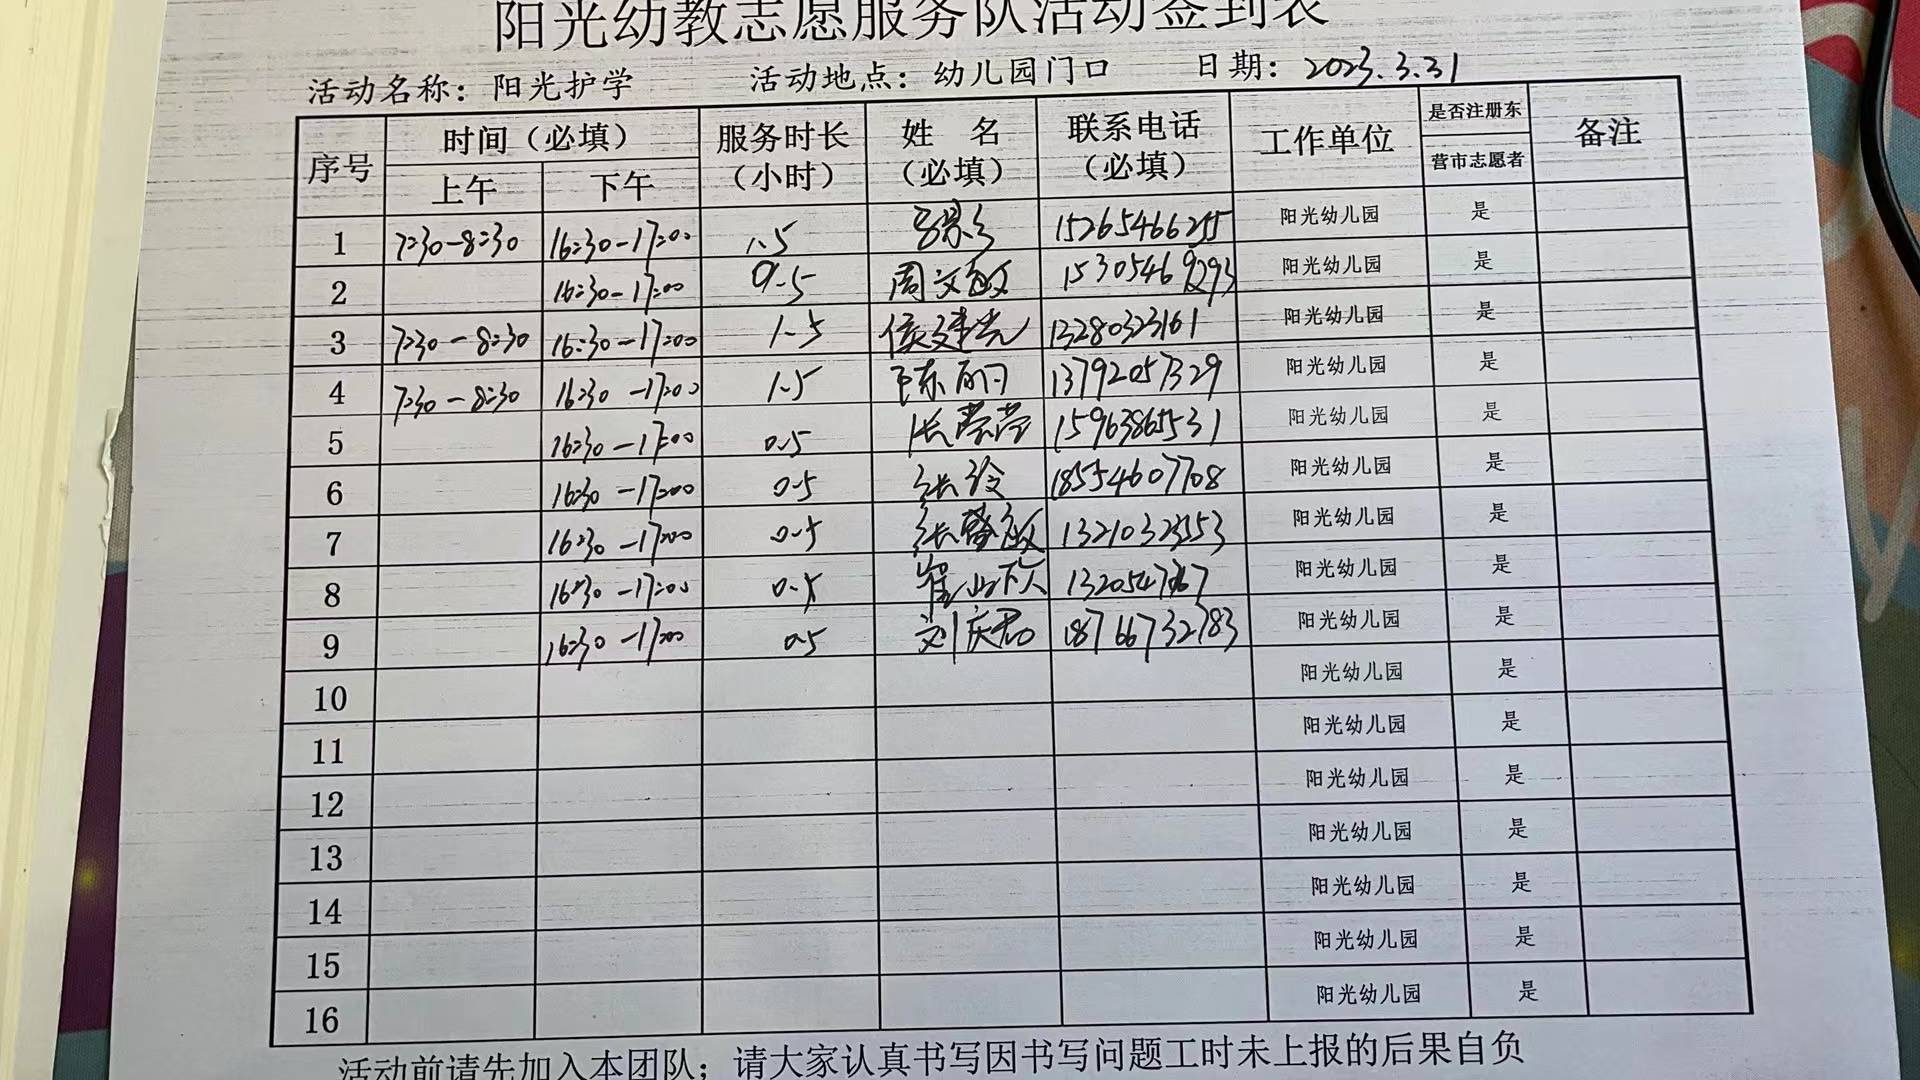 阳光幼教志愿服务队活动签到表
活动名称：阳光护学 活动地点：幼儿园门口 日期：2023.3.31
序号 时间（必填） 服务时长（小时） 姓 名（必填） 联系电话（必填） 工作单位 是否注册东营市志愿者 备注
上午 下午
1 7:30-8:30 16:30-17:00 1.5 15265466255 阳光幼儿园 是
2 16:30-17:00 0.5 周文敏 15305469293 阳光幼儿园 是
3 7:30-8:30 16:30-17:00 1.5 侯建光 13280323161 阳光幼儿园 是
4 7:30-8:30 16:30-17:00 1.5 陈丽 13792057329 阳光幼儿园 是
5 16:30-17:00 0.5 张莹莹 15963865531 阳光幼儿园 是
6 16:30-17:00 0.5 张玲 18554607708 阳光幼儿园 是
7 16:30-17:00 0.5 13210323553 阳光幼儿园 是
8 16:30-17:00 0.5 阳光幼儿园 是
9 16:30-17:00 0.5 刘庆君 18766732783 阳光幼儿园 是
10 阳光幼儿园 是
11 阳光幼儿园 是
12 阳光幼儿园 是
13 阳光幼儿园 是
14 阳光幼儿园 是
15 阳光幼儿园 是
16 阳光幼儿园 是
活动前请先加入本团队；请大家认真书写因书写问题工时未上报的后果自负